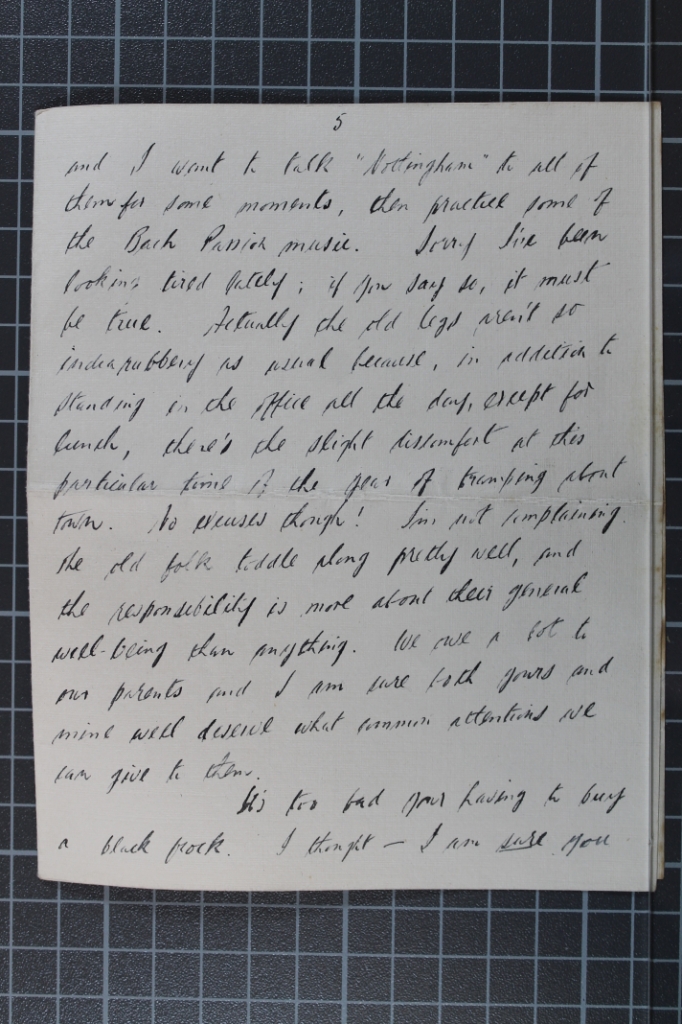 5
and I want to talk "Nottingham" to all of
them for some moments, then practice some of
the Bach Passion music. Sorry I've been
looking tired lately; if you say so, it must
be true. Actually the old legs aren't so
indiarubbery as usual because, in addition to
standing in the office all the day, except for
lunch, there's the slight discomfort at this
particular time of the year of tramping about
town. No excuses though! I'm not complaining.
The old folk toddle along pretty well, and
the responsibility is more about their general
well-being than anything. We owe a lot to
our parents and I am sure both yours and
mine well deserve what common attentions we
can give to them.
It's too bad your having to buy
a black frock. I thought – I am sure you